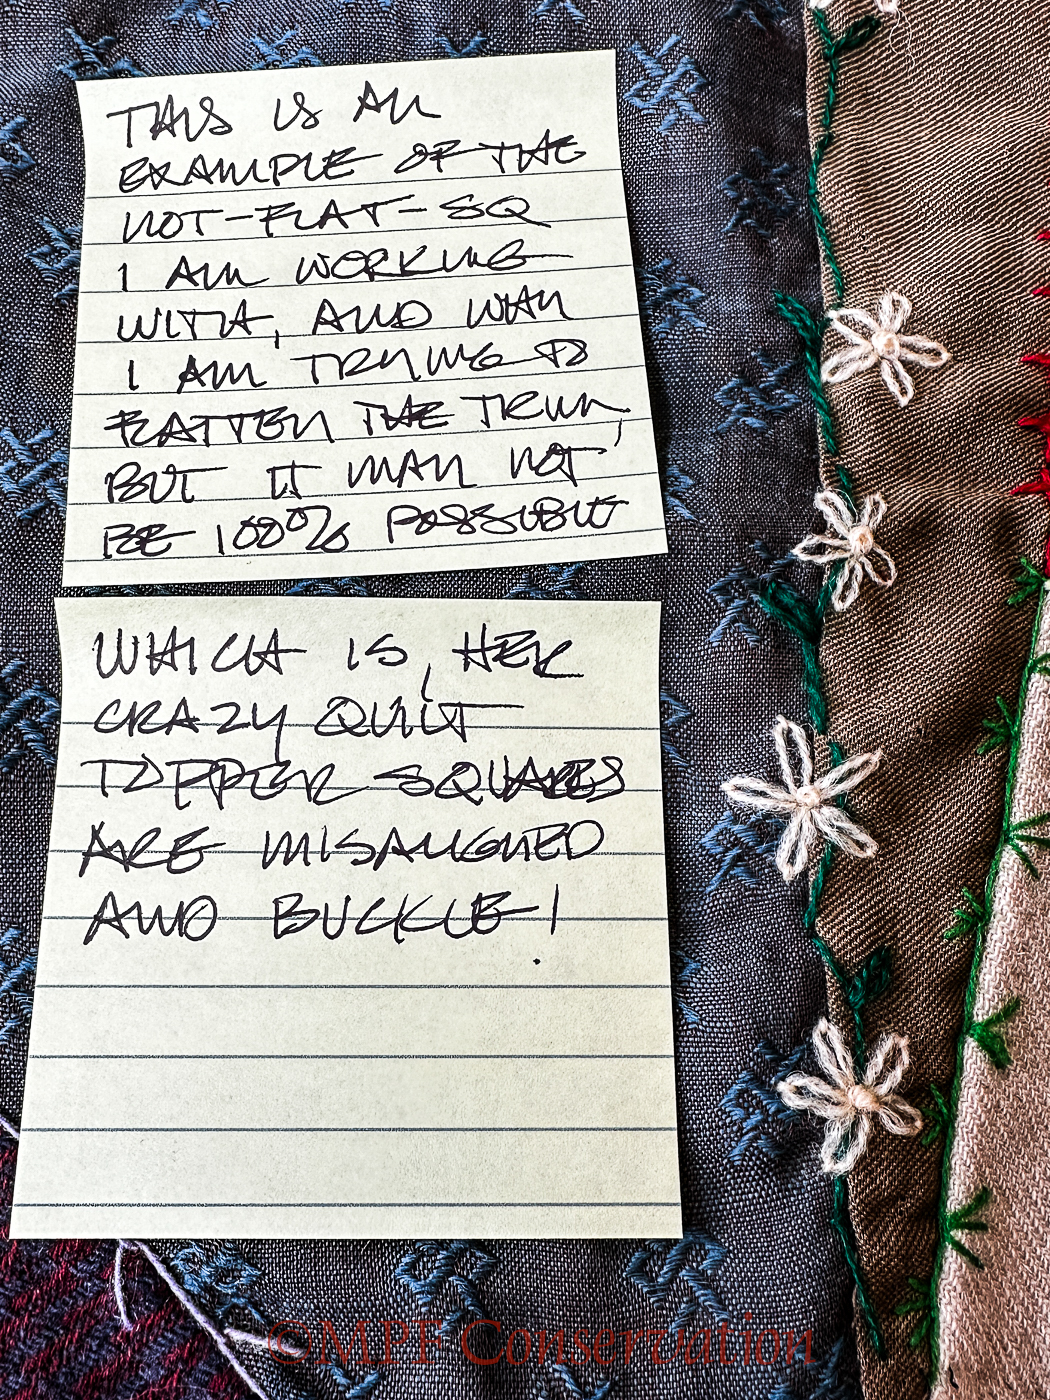 THIS IS AN
EXAMPLE OF THE
NOT-FLAT-SQ
I AM WORKING
WITH, AND WHY
I AM TRYING TO
FLATTEN THE TRIM,
BUT IT MAY NOT
BE 100% POSSIBLE
WHICH IS, HER
CRAZY QUILT
TOPPER SQUARES
ARE MISALIGNED
AND BUCKLE!
©MPF Conservation